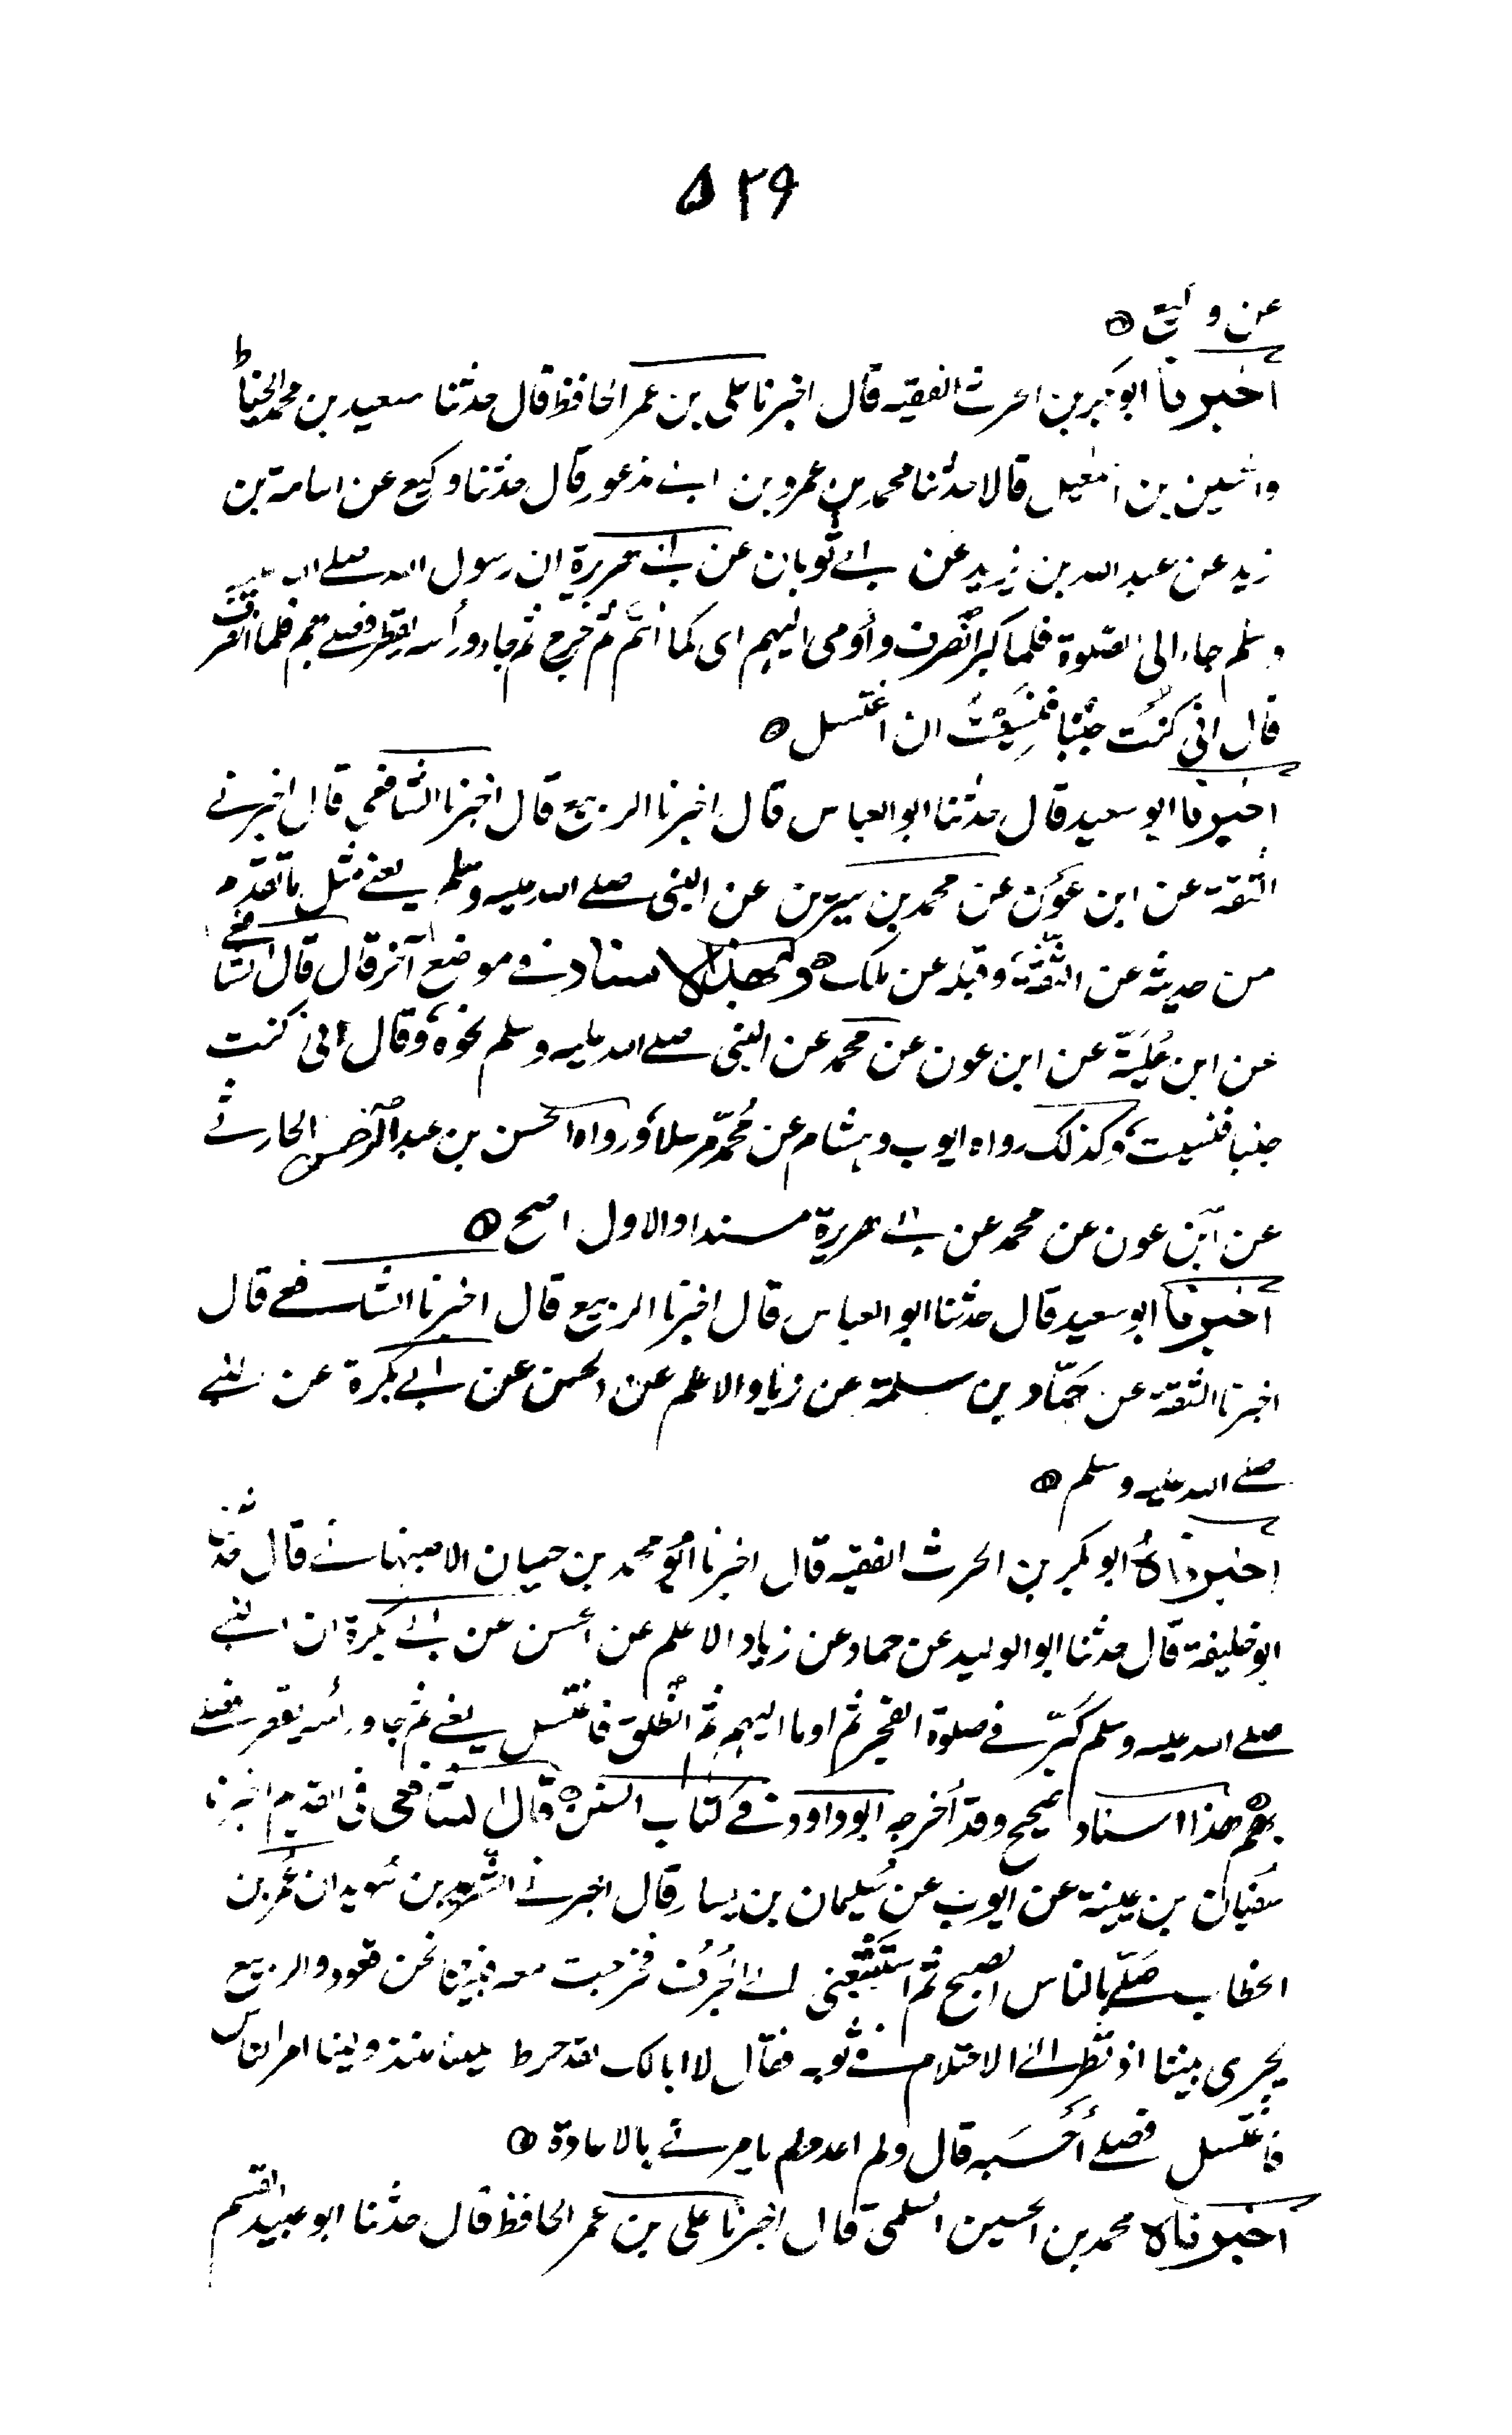 ٥٢٩
عن وكيع ۞
اخبرنا ابو بكر بن الحرث الفقيه قال اخبرنا علي بن عمر الحافظ قال حدثنا سعيد بن محمد الحناط
والحسين بن اسمعيل قالا حدثنا محمد بن عمرو بن ابي مذعور قال حدثنا وكيع عن اسامة بن
زيد عن عبد الله بن يزيد عن ابي ثوبان عن ابي هريرة ان رسول الله صلى الله عليه
وسلم جاء الى الصلوة فلما كبر انصرف وأومى اليهم اى كما انتم ثم خرج ثم جاء ورأسه يقطر فصلى بهم فلما انصرف
قال اني كنت جنبا فنسيت ان اغتسل ۞
اخبرنا ابو سعيد قال حدثنا ابو العباس قال اخبرنا الربيع قال اخبرنا الشافعي قال اخبرني
الثقة عن ابن عون عن محمد بن سيرين عن النبي صلى الله عليه وسلم يعني مثل ما تقدم
من حديثه عن الثقة وقبله عن ملك ۞ وبهذا الاسناد في موضع آخر قال قال الشافعي
عن ابن علية عن ابن عون عن محمد عن النبي صلى الله عليه وسلم نحوه وقال اني كنت
جنبا فنسيت وكذلك رواه ايوب وهشام عن محمد مرسلا ورواه الحسن بن عبد الرحمن الحارثي
عن ابن عون عن محمد عن ابي هريرة مسندا والاول اصح ۞
اخبرنا ابو سعيد قال حدثنا ابو العباس قال اخبرنا الربيع قال اخبرنا الشافعي قال
اخبرنا الثقة عن حمّاد بن سلمة عن زياد الاعلم عن الحسن عن ابي بكرة عن النبي
صلى الله عليه وسلم ۞
اخبرناه ابو بكر بن الحرث الفقيه قال اخبرنا ابو محمد بن حيان الاصبهاني قال حدثنا
ابو خليفة قال حدثنا ابو الوليد عن حماد عن زياد الاعلم عن الحسن عن ابي بكرة ان النبي
صلى الله عليه وسلم كبّر في صلوة الفجر ثم اوما اليهم ثم انطلق فاغتسل يعني ثم جاء ورأسه يقطر فصلى
بهم ۞ هذا اسناد صحيح وقد أخرجه ابو داود في كتاب السنن ۞ قال الشافعي في القديم اخبرنا
سفيان بن عيينة عن ايوب عن سُليمان بن يسار قال اخبرني الشريد بن سُويد ان عُمر بن
الخطاب صلّى بالناس الصبح ثم استتبعني الى الجُرُف فخرجت معه فبينا نحن قعود والربيع
يجرى بيننا اذ نظر الى الاحتلام في ثوبه فقال لا ابا لك لقد حرط علينا منذ ولينا امر الناس
فاغتسل فصلى أحسبه قال ولم اعد ولم يامرني بالاعادة ۞
اخبرناه محمد بن الحسين السلمي قال اخبرنا علي بن عمر الحافظ قال حدثنا ابو عبيد القسم